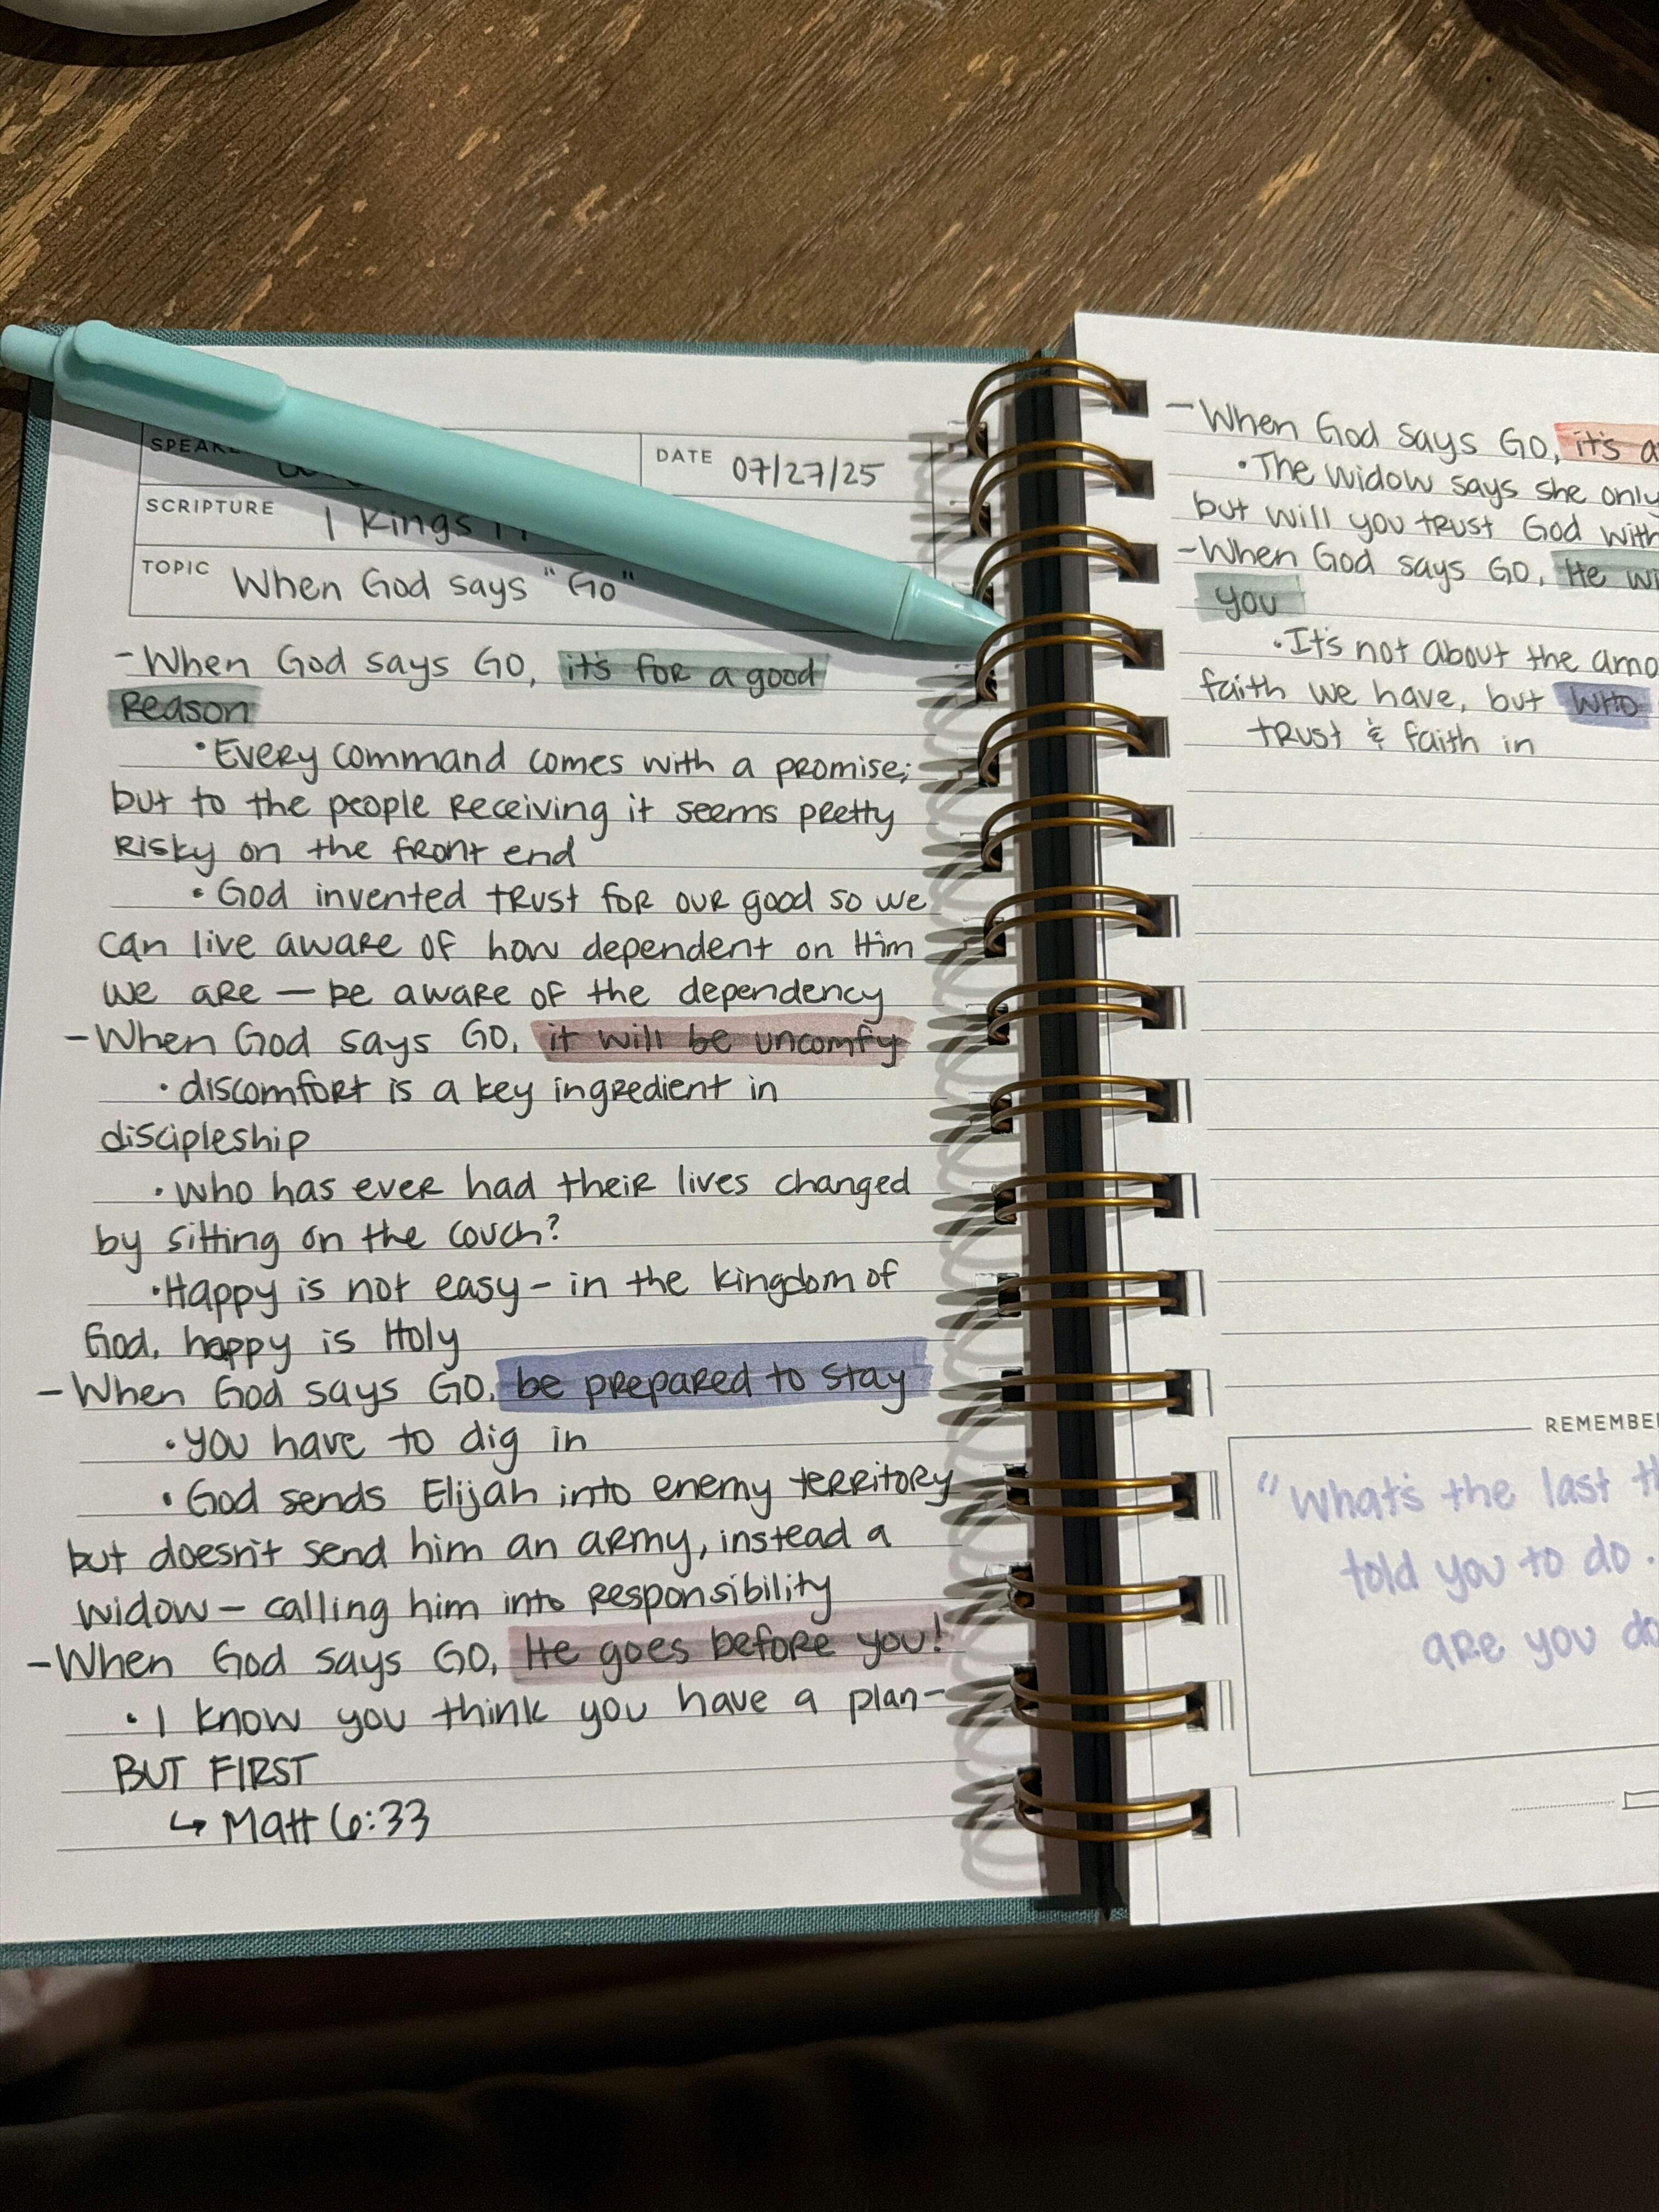 DATE 07/27/25
SCRIPTURE 1 Kings
TOPIC When God says "Go"
- When God says GO, it's for a good
Reason
• Every command comes with a promise;
but to the people receiving it seems pretty
risky on the front end
• God invented trust for our good so we
can live aware of how dependent on Him
we are — be aware of the dependency
- When God says GO, it will be uncomfy
• discomfort is a key ingredient in
discipleship
• who has ever had their lives changed
by sitting on the couch?
• Happy is not easy - in the kingdom of
God, happy is Holy
- When God says GO, be prepared to stay
• you have to dig in
• God sends Elijah into enemy territory
but doesn't send him an army, instead a
widow - calling him into responsibility
- When God says GO, He goes before you!
• I know you think you have a plan -
BUT FIRST
↳ Matt 6:33
- When God says GO, it's
• The widow says she only
but will you trust God with
- When God says GO, He
you
• It's not about the
faith we have, but who
trust & faith in
REMEMBE
"What's the last
told you to do.
are you